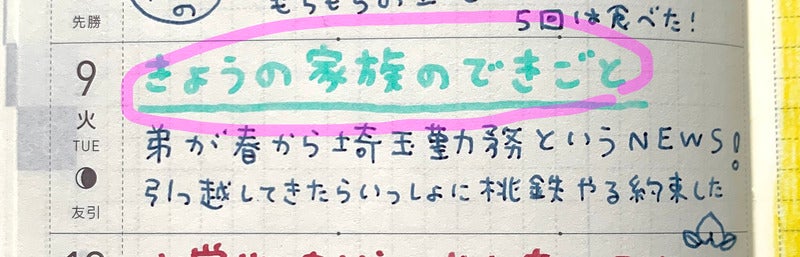 の
先勝
5回は食べた!
9
火
TUE
友引
きょうの家族のできごと
弟が春から埼玉勤務というNEWS!
引っ越してきたらいっしょに桃鉄やる約束した